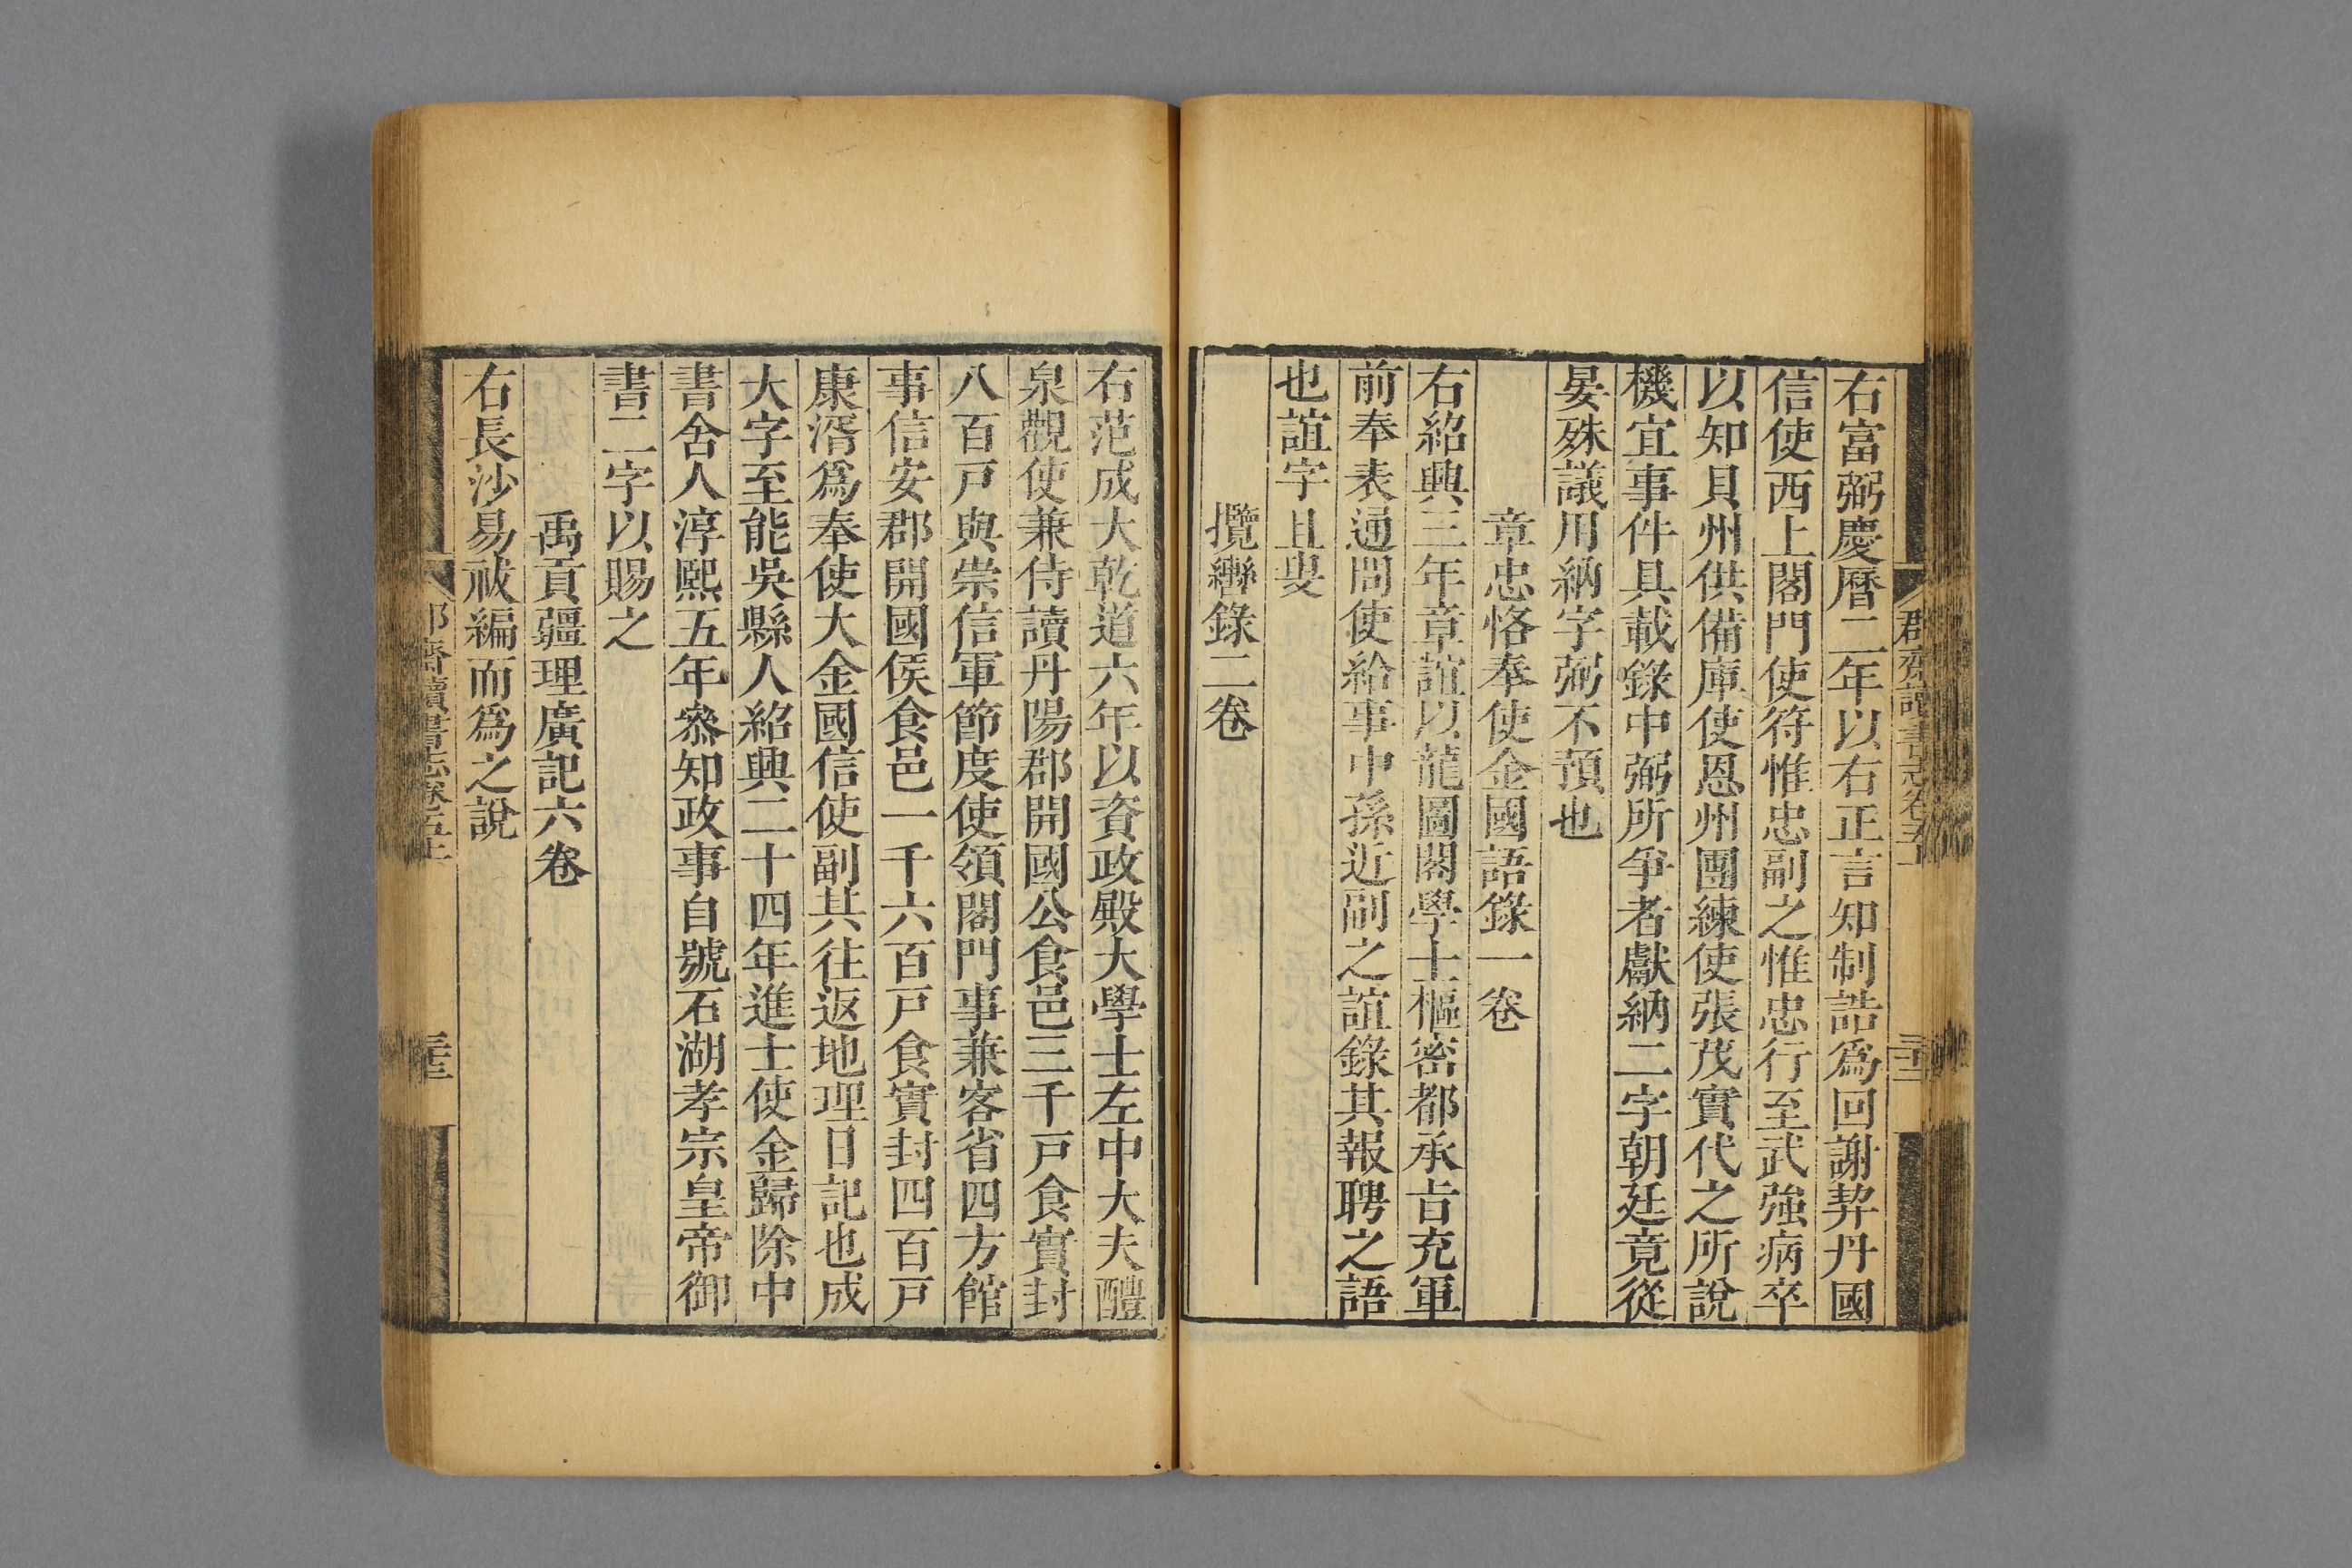 右富弼慶曆二年以右正言知制誥爲回謝契丹國
信使西上閤門使符惟忠副之惟忠行至武強病卒
以知貝州供備庫使恩州團練使張茂實代之所說
機宜事件具載錄中弼所爭者獻納二字朝廷竟從
晏殊議用納字弼不預也
章忠恪奉使金國語錄一卷
右紹興三年章誼以龍圖閣學士樞密都承旨充軍
前奉表通問使給事中孫近副之誼錄其報聘之語
也誼字且叟
攬轡錄二卷
右范成大乾道六年以資政殿大學士左中大夫醴
泉觀使兼侍讀丹陽郡開國公食邑三千戶食實封
八百戶與崇信軍節度使領閤門事兼客省四方館
事信安郡開國侯食邑一千六百戶食實封四百戶
康湑爲奉使大金國信使副其往返地理日記也成
大字至能吳縣人紹興二十四年進士使金歸除中
書舍人淳熙五年叅知政事自號石湖孝宗皇帝御
書二字以賜之
禹貢疆理廣記六卷
右長沙易祓編而爲之說